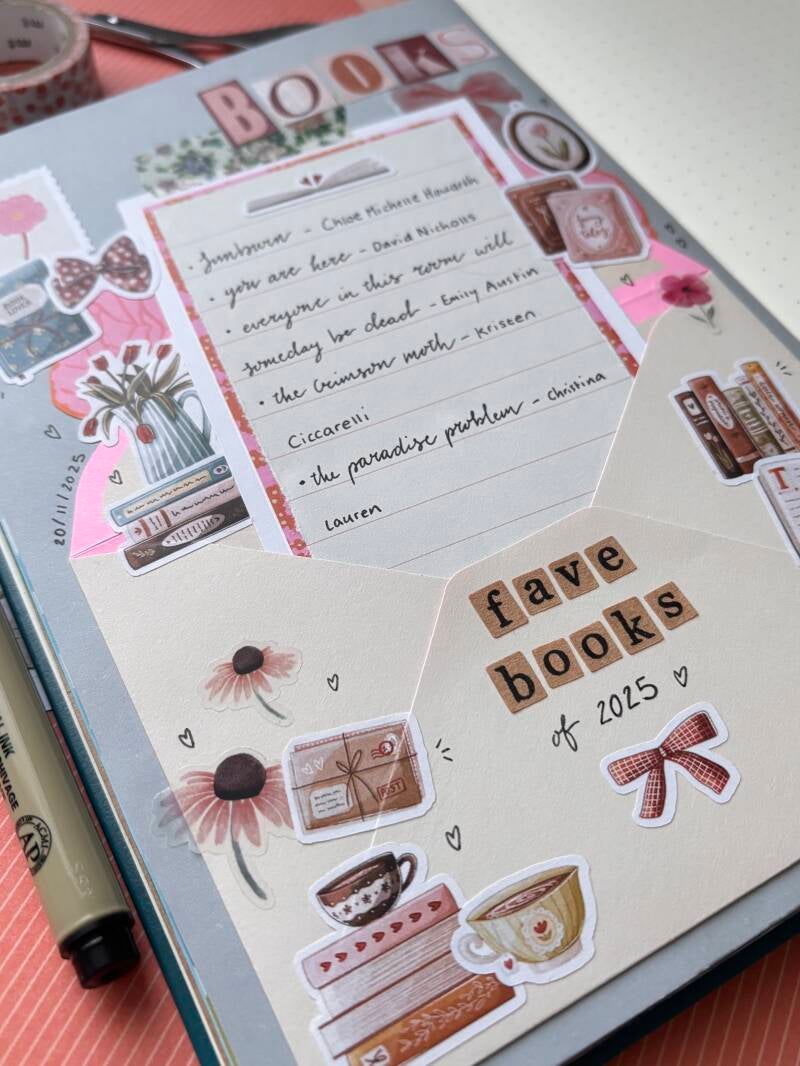 BOOKS
• Sunburn - Chloe Michelle Howarth
• you are here - David Nicholls
• everyone in this room will
someday be dead - Emily Austin
• the Crimson moth - Kristen
Ciccarelli
• the paradise problem - christina
Lauren
BOOK
LOVER
20/11/2025
fave
books
of 2025
POST